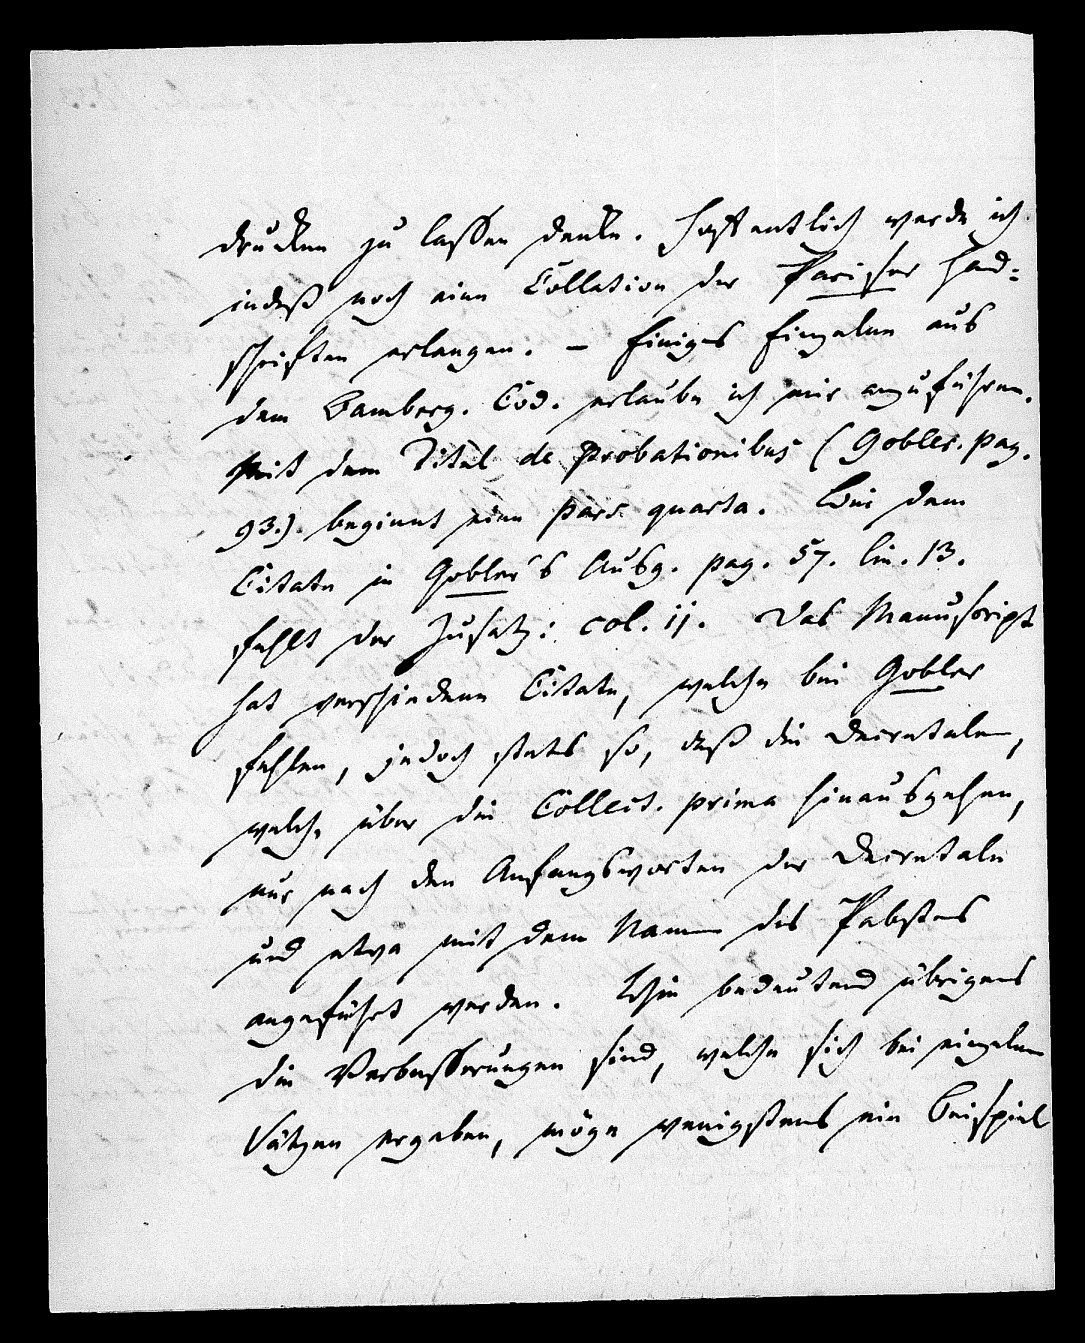 drucken zu lassen denke. Hoffentlich werde ich
indeß noch eine Collation der Pariser Hand=
schriften erlangen. – Einiges Einzelne aus
dem Bamberg. Cod. erlaube ich mir anzuführen.
Mit dem Titel de probationibus (Gobler. pag.
93.). beginnt eine pars quarta. Bei dem
Citate in Gobler's Ausg. pag. 57. lin. 13.
fehlt der Zusatz: col. ij. Das Manuscript
hat verschiedene Citate, welche bei Gobler
fehlen, jedoch stets so, daß die Decretalen,
welche über die Collect. prima hinausgehen,
nur nach den Anfangsworten der Decretale
und etwa mit dem Namen des Pabstes
angeführt werden. Wie bedeutend übrigens
die Verbesserungen sind, welche sich bei einzelnen
Sätzen ergeben, möge wenigstens ein Beispiel